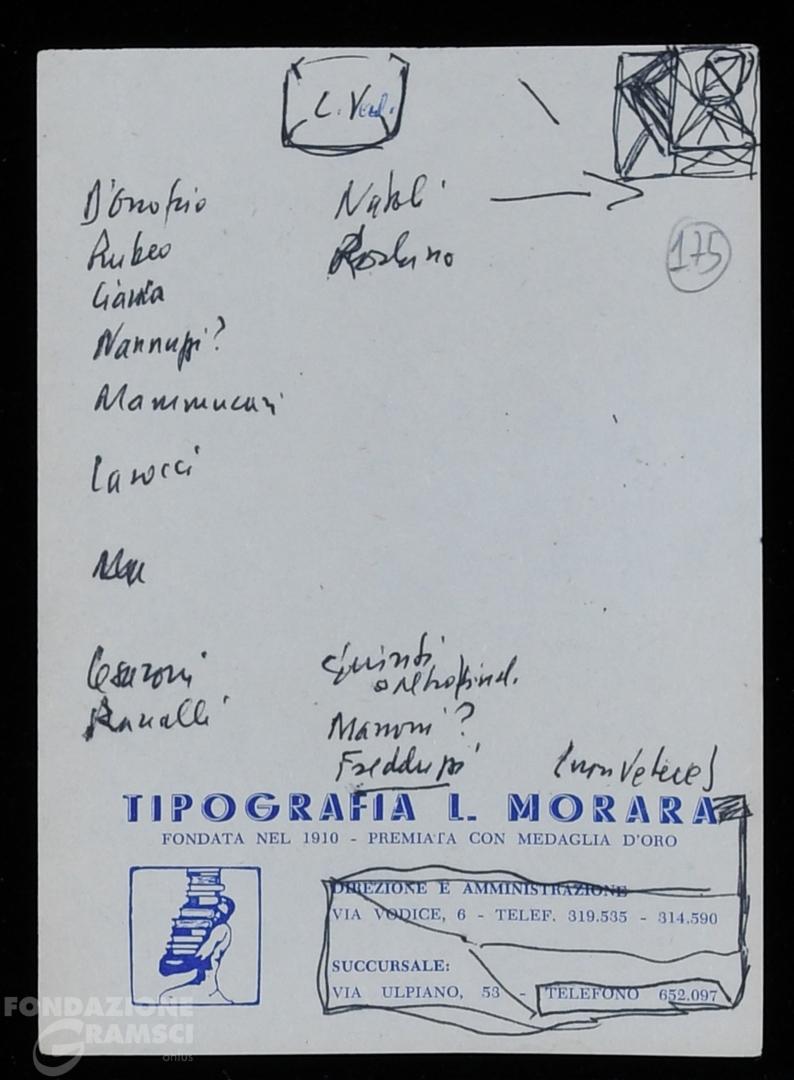 L. Val.
D'Onofrio Natoli
Rubeo
Ciania
Nannuzzi?
Mammucari
Carocci
Cesaroni
Ranalli
Marroni?
Fredduzzi (non Vetere)
175
TIPOGRAFIA L. MORARA
FONDATA NEL 1910 - PREMIATA CON MEDAGLIA D'ORO
DIREZIONE E AMMINISTRAZIONE
VIA VODICE, 6 - TELEF. 319.535 - 314.590
SUCCURSALE:
VIA ULPIANO, 53 - TELEFONO 652.097
FONDAZIONE
GRAMSCI
onlus